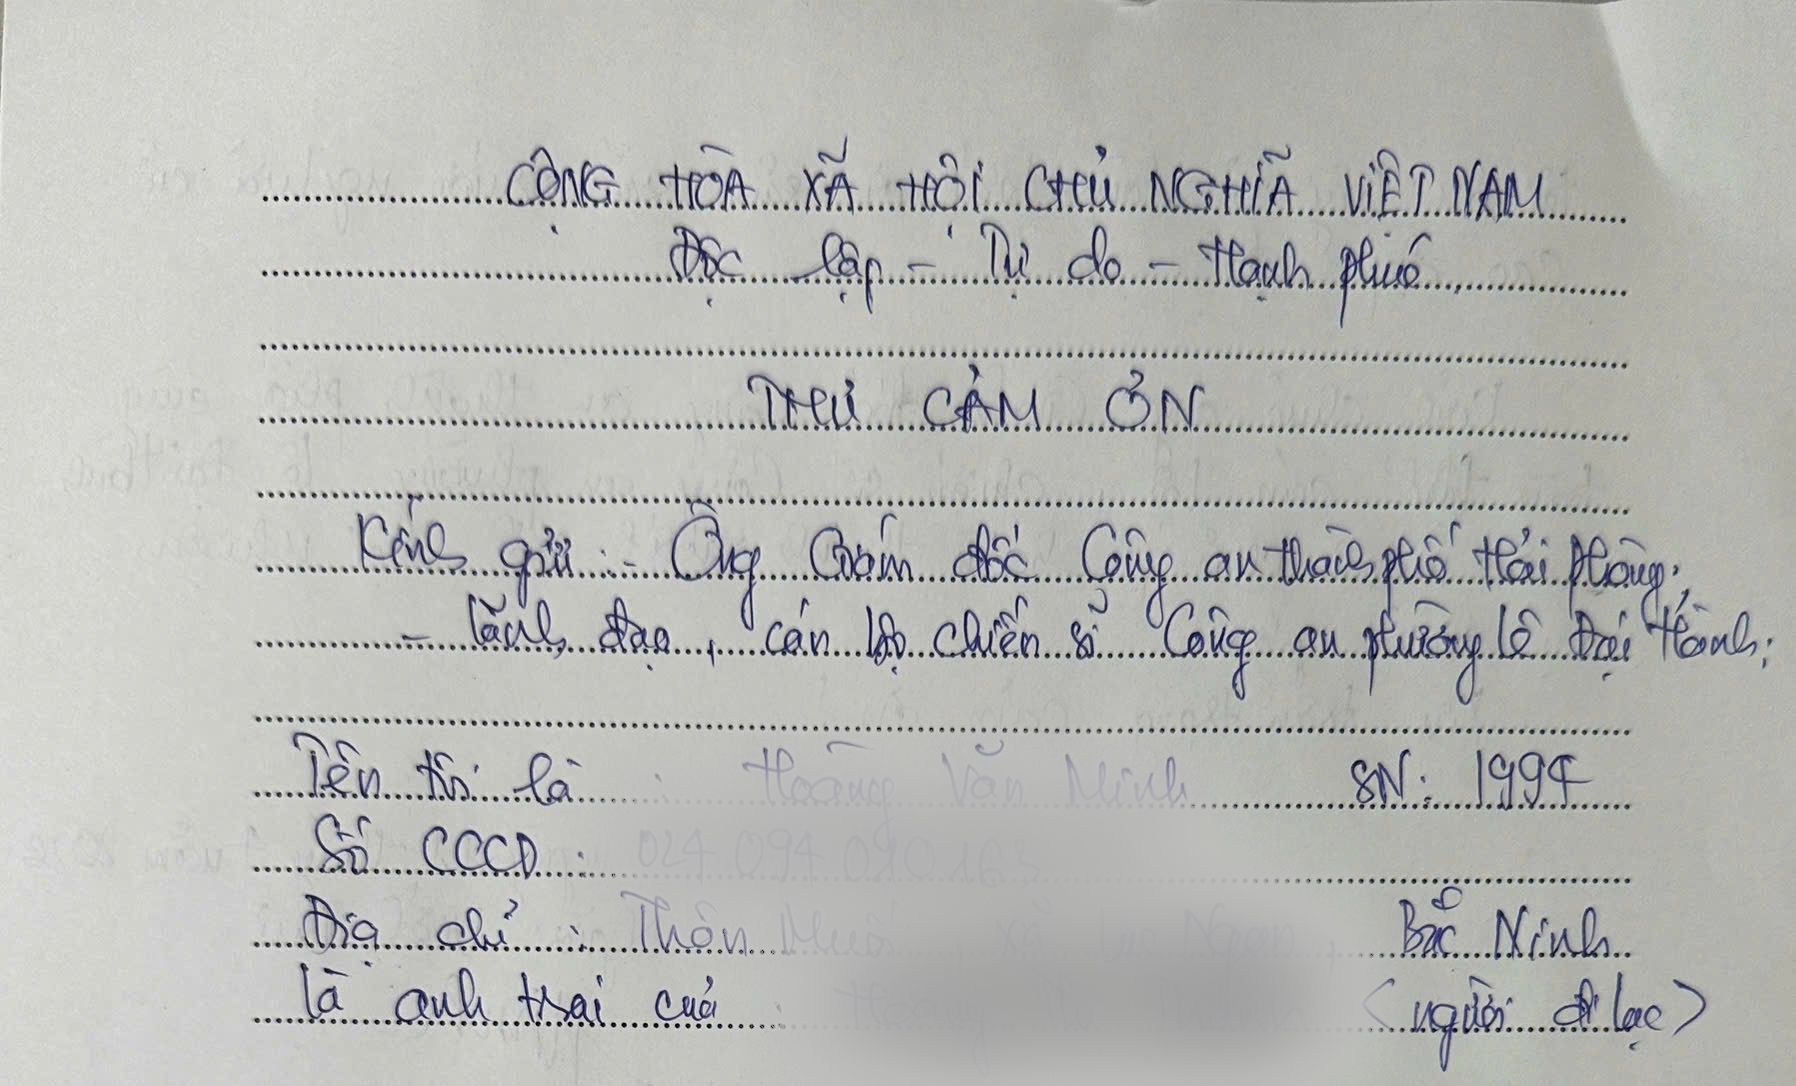 CỘNG HÒA XÃ HỘI CHỦ NGHĨA VIỆT NAM
Độc lập - Tự do - Hạnh phúc
THƯ CẢM ƠN
Kính gửi : - Ông Giám đốc Công an thành phố Hải Phòng;
- Lãnh đạo, cán bộ chiến sĩ Công an phường Lê Đại Hành;
Tên tôi là : Hoàng Văn Minh SN: 1994
Số CCCD :
Địa chỉ : Thôn Bắc Ninh
là anh trai của (người đi lạc)